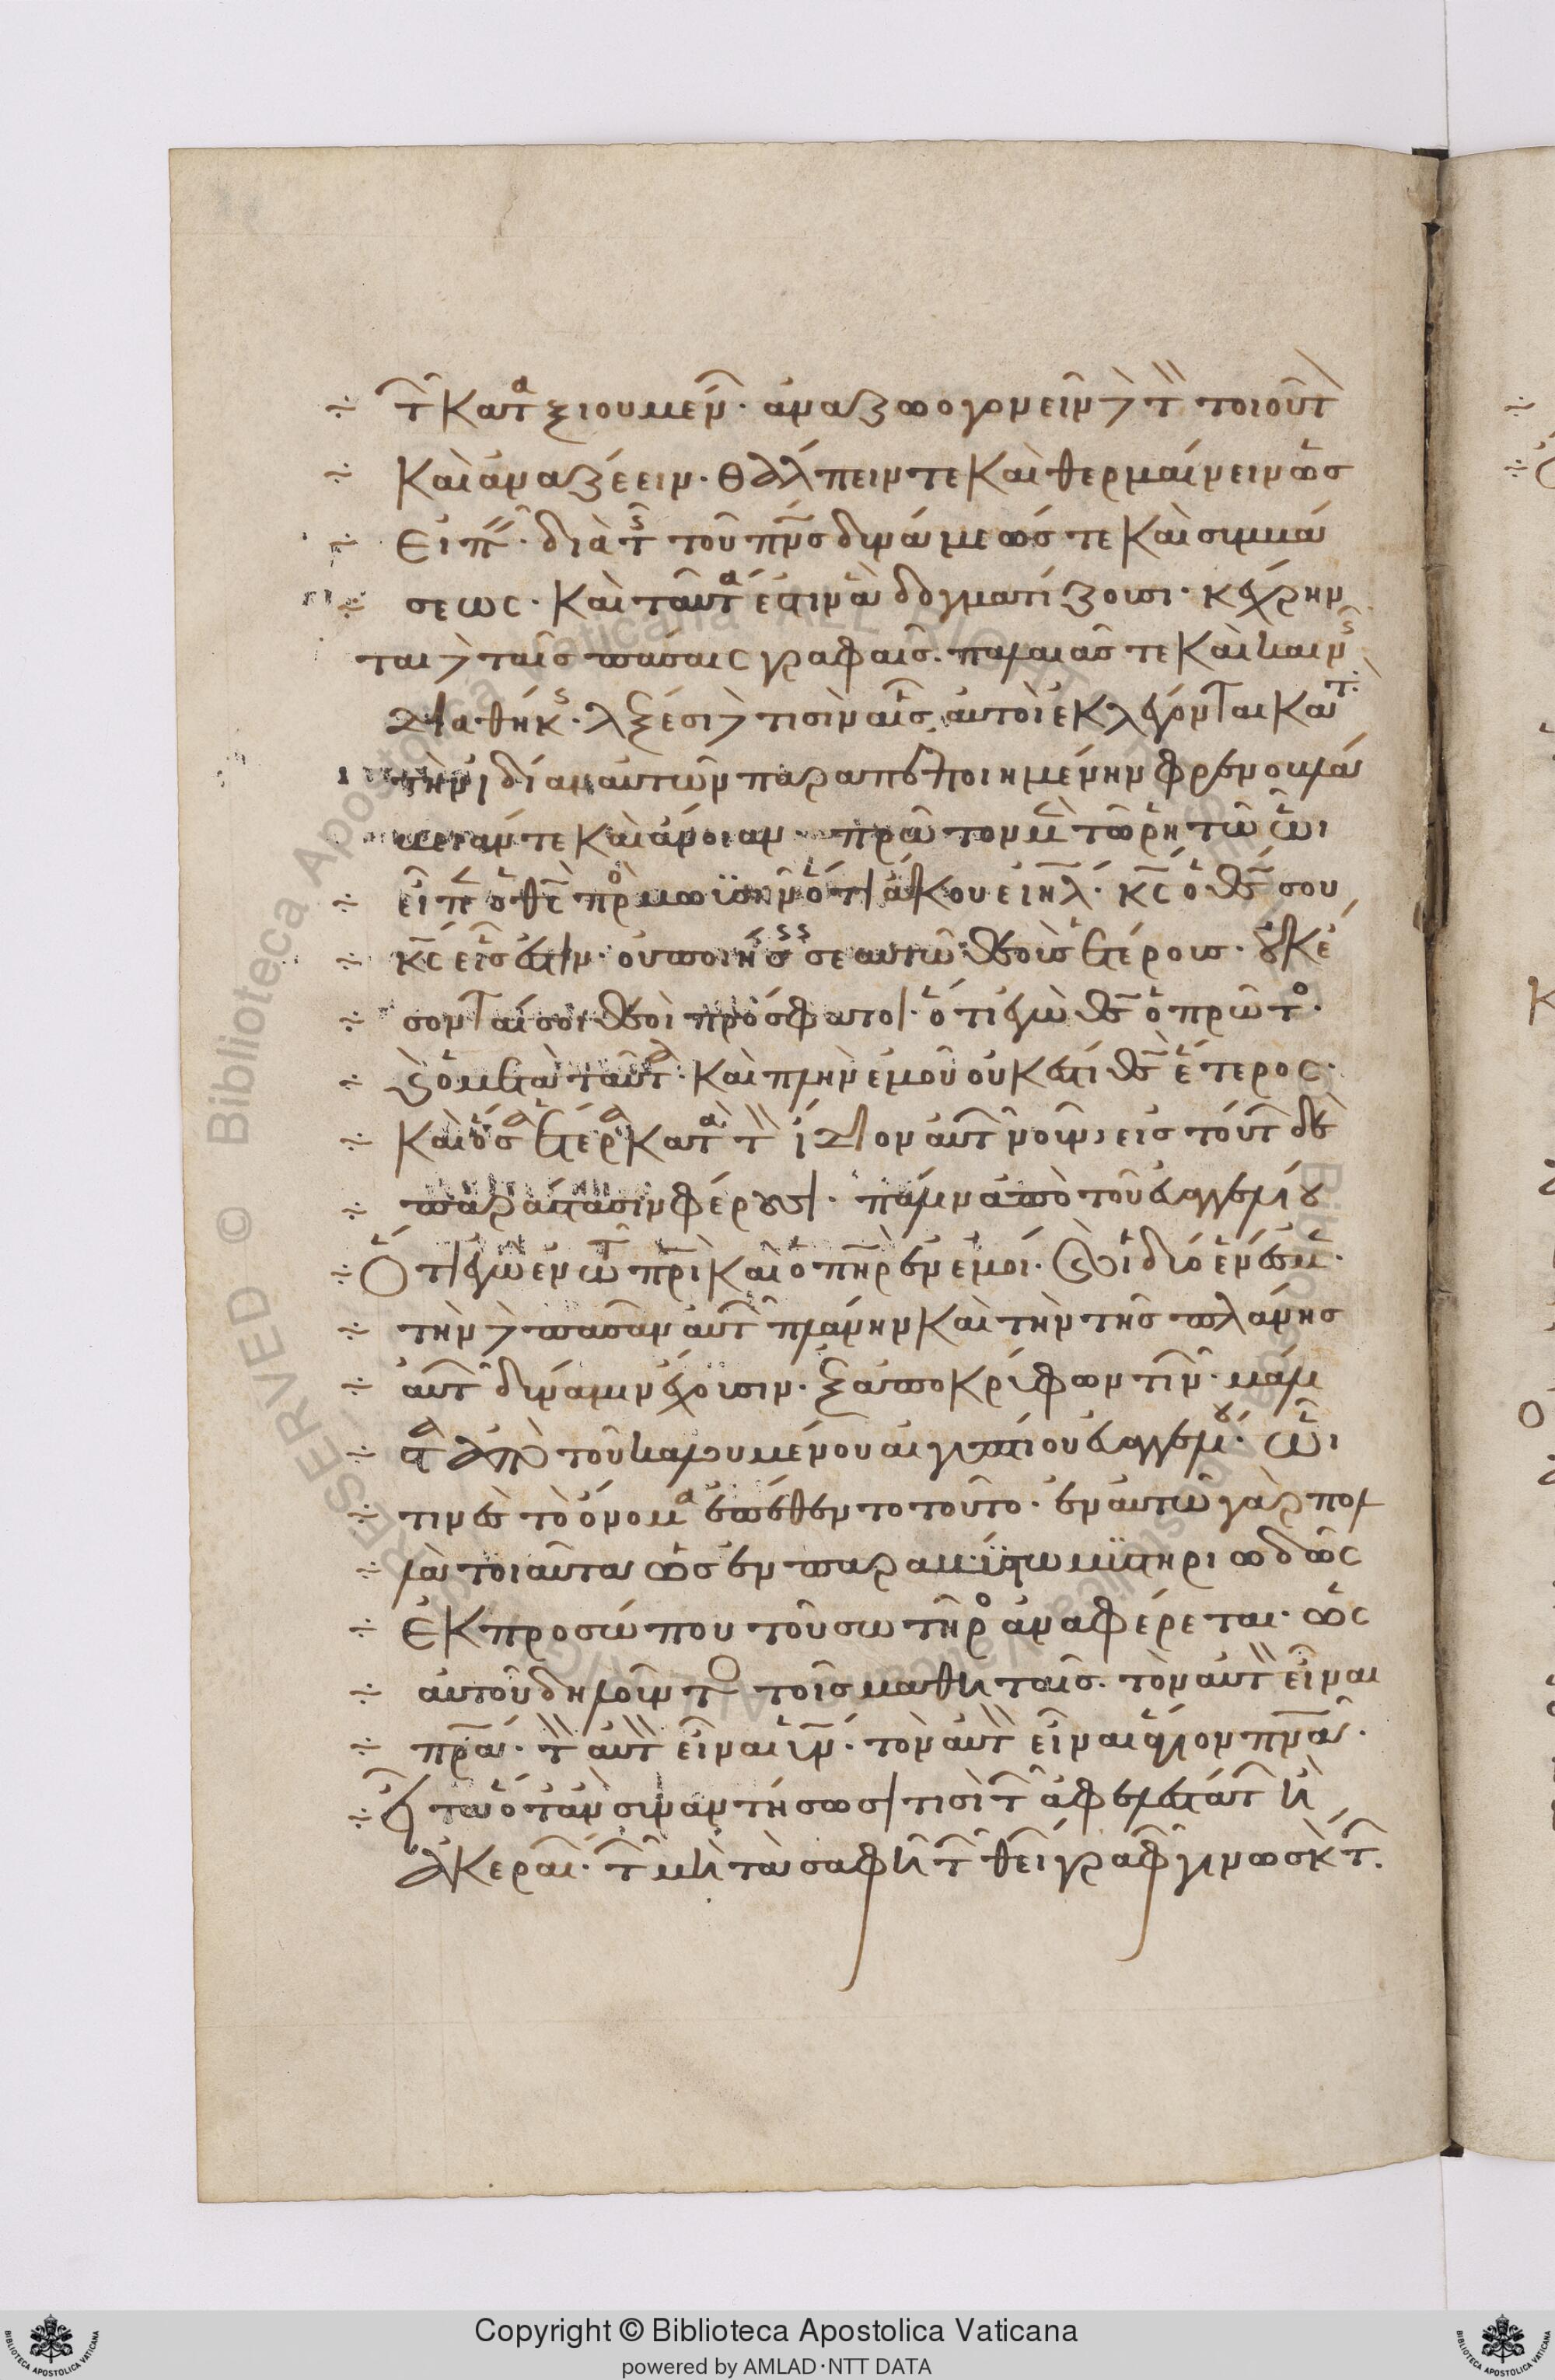 τ̑ κατ̑ᾰξιουμέν̑· ἀναζωογονεῖν δ̀ τ̏ τοιοῦτ̀
καὶ ἀναζέειν· θάλπειν τε καὶ θερμαίνειν ὡς
εἰπ̏· διὰ τ̑ τοῦ πν̅ς δυνάμεώς τε καὶ συμβά
σεως· καὶ ταῦτα ἐστιν ἃ δογματίζουσι· κέχρην
ται δ̀ ταῖς πάσαις γραφαῖς· παλαιᾶς τε καὶ καιν̑
διαθήκ· λέξεσι δ̀ τισὶν αἷς αὐτοὶ ἐκλέγονται κατ̀
τὴν ἰδίαν αὐτῶν παραπεποιημένην φρενοβλά
βειαν τε καὶ ἄνοιαν· πρῶτον μ̀ τὸ ῥητὸ ὧι
εἶπεν ὁ θς̅ πρὸ μωϋσῆν ὅτι ἄκουε ιη̅λ· κς̅ ὁ θς̅ σου
κς̅ εἷς ἐστιν· οὐ ποιήσ σεαυτῶ θεοὺς ἑτέρους· οὐκ ἔ
σονταί σοι θεοὶ πρόσφατοι· ὅτι ἐγὼ θς̅ ὁ πρῶτο·
καὶ ἐγὼ μετὰ ταῦτα· καὶ πλὴν ἐμοῦ οὐκ ἔστι θς̅ ἕτερος·
καὶ ὅσα ἕτερα κατὰ τ̏ ἴδιον αὐτ̑ νοῦν εἰς τοῦτ δὲ
παριστᾶσιν φέρουσι· πάλιν ἀπὸ τοῦ εὐαγγελίου
Ὅτι ἐγὼ ἐν τῶ πρ̅ὶ καὶ ὁ πη̅ρ ἐν ἐμοί· καὶ οἱ δύο ἕν ἐσμ·
τὴν δ̀ πᾶσαν αὐτ̑ πλάνην καὶ τὴν τῆς πλάνης
αὐτ̑ δύναμιν ἔχουσιν· ἐξ ἀποκρύφων τιν̑· μάλι
στα ἀπὸ τοῦ καλουμένου αἰγυπτίου εὐαγγελίου· ὧι
τινὲς τὸ ὄνομα ἐπέθεντο τοῦτο· ἐν αὐτῶ γὰρ πολ
λὰ τοιαῦτα ὡς ἐν παραβύστω μϋστηριωδῶς
ἐκ προσώπου τοῦ σωτῆρο ἀναφέρεται· ὡς
αὐτοῦ δηλοῦντο τοῖς μαθηταῖς· τὸν αὐτ̏ εἶναι
πρ̅α· τ̏ αὐτ̏ εἶναι υν̅· τὸν αὐτ̏ εἶναι ἅγιον πν̅α·
εἶτα ὅταν συναντήσωσι τισὶ τ̑ ἀφελεστάτ ἢ
ἀκεραί· τ̑ μὴ τὰ σαφῆ τ̑ θεί γραφ̑ γινωσκ τ̑·
Copyright © Biblioteca Apostolica Vaticana
powered by AMLAD·NTT DATA